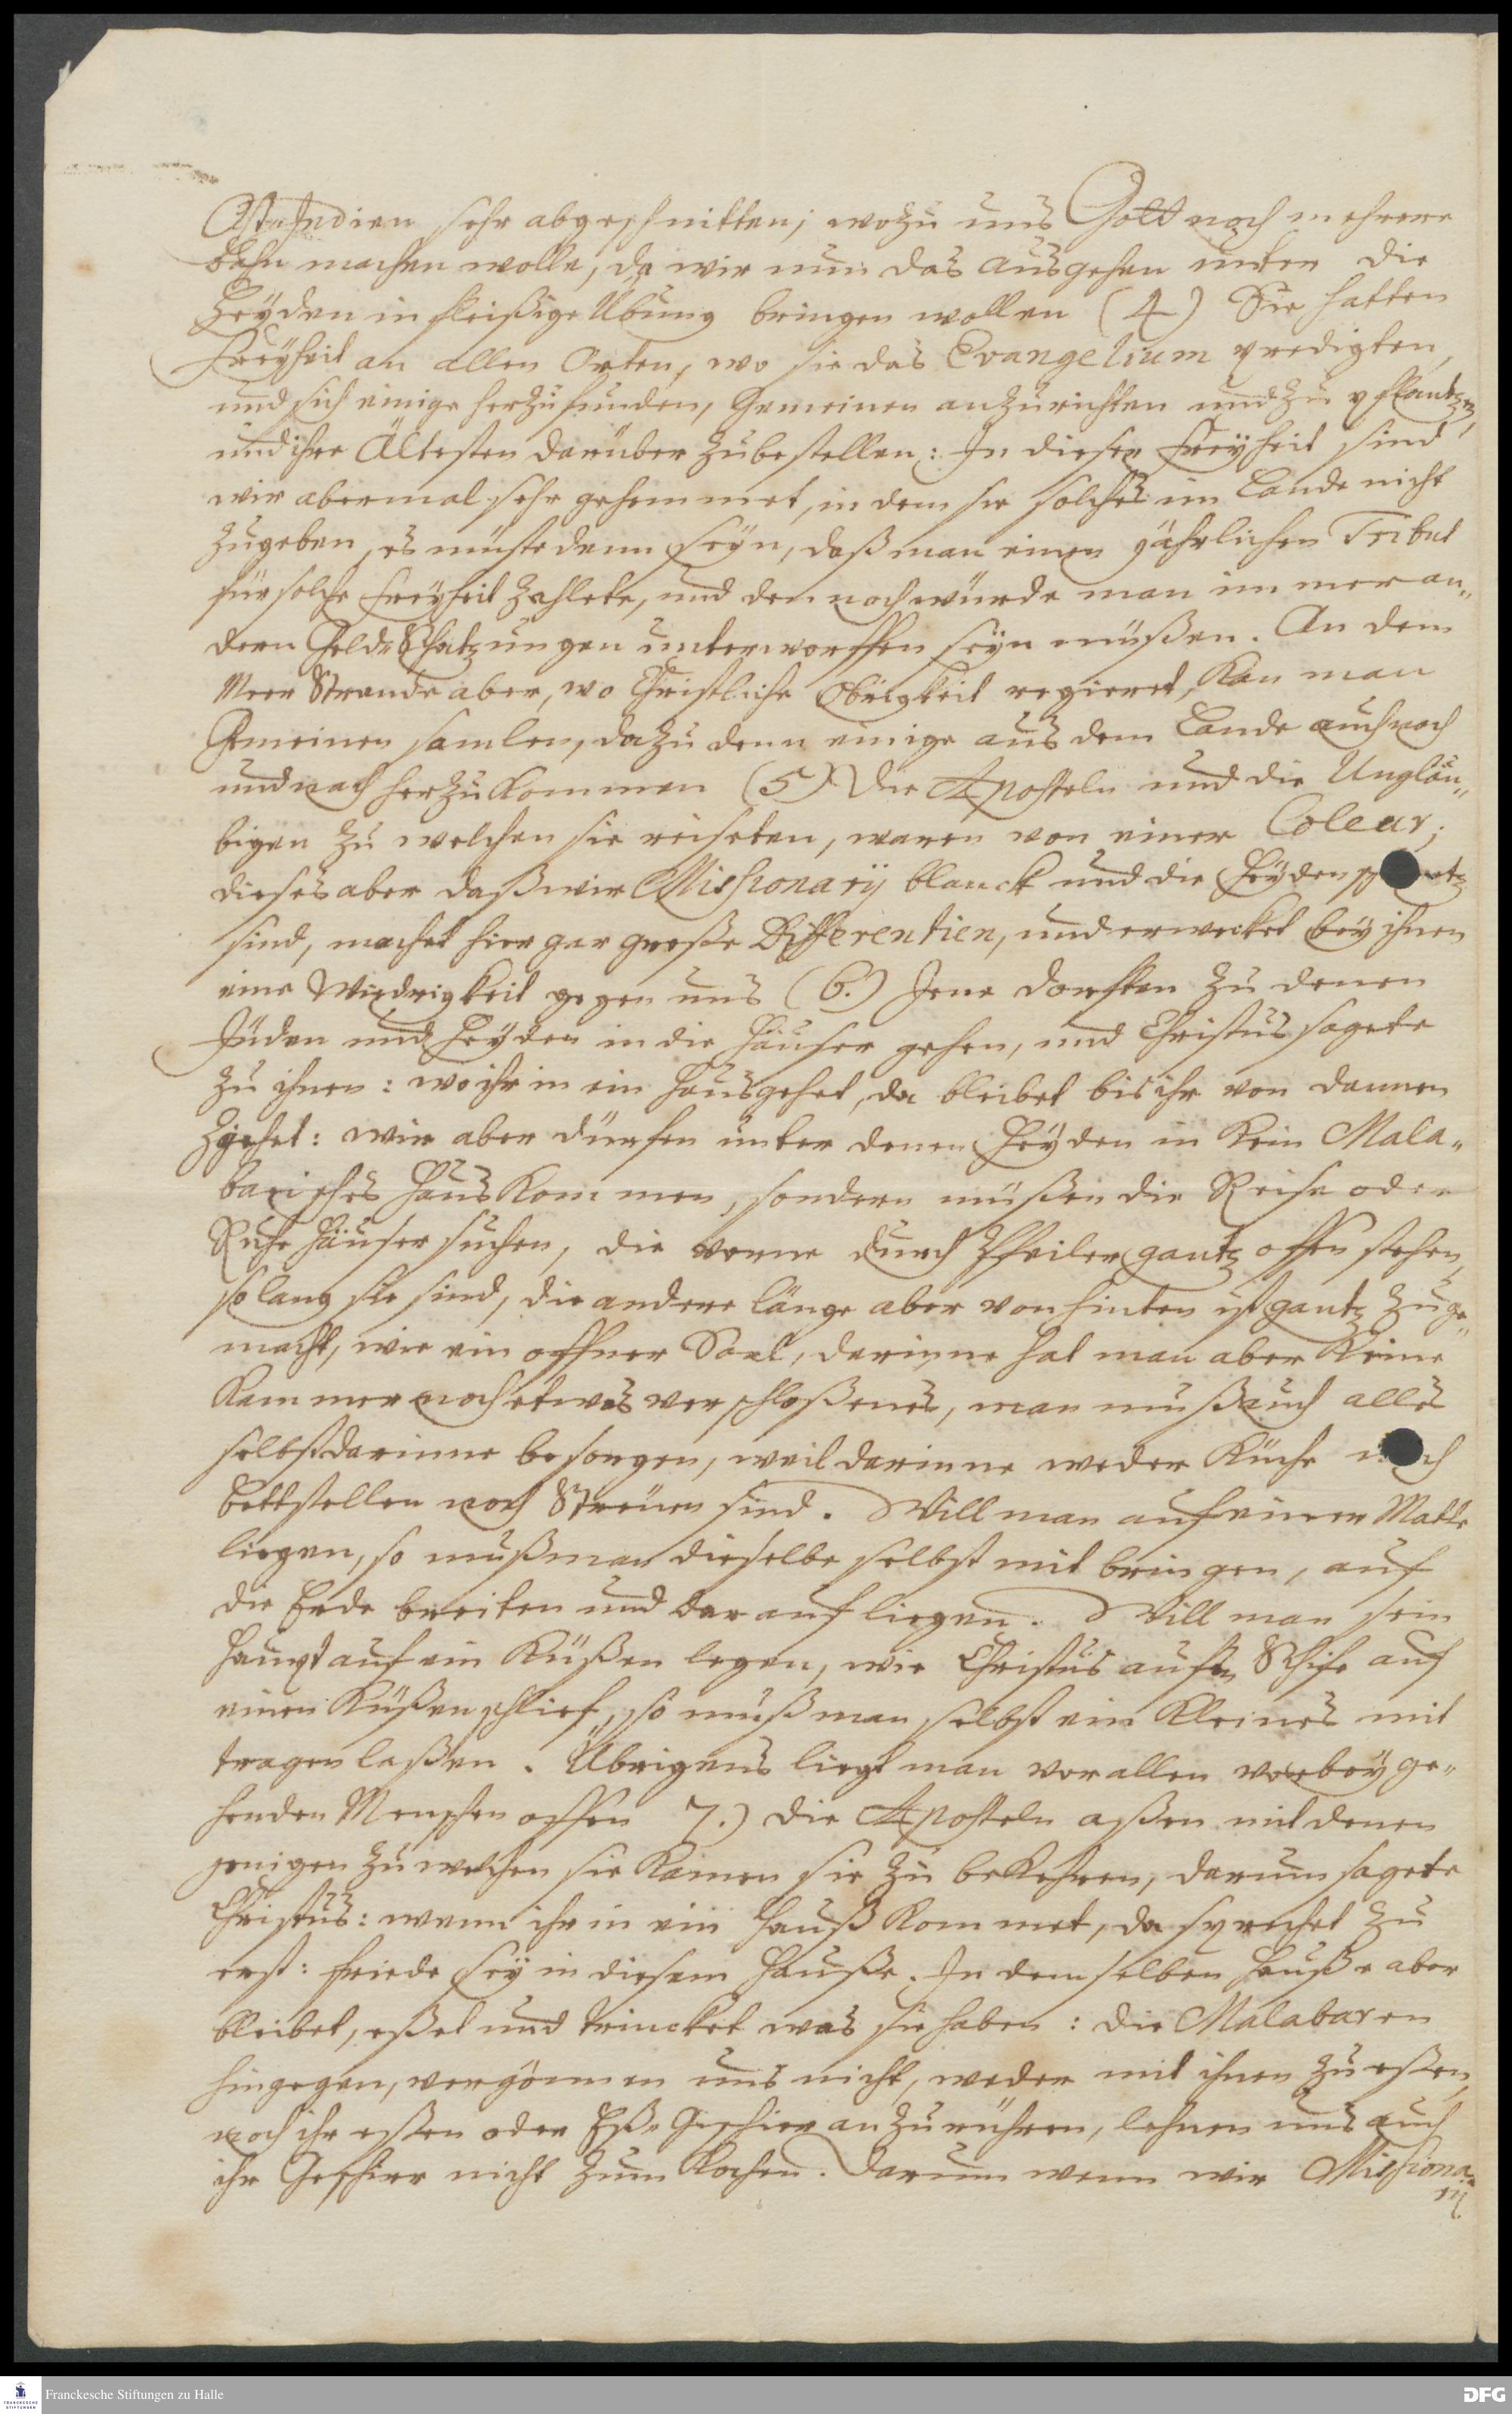 Ost-Indien sehr abgeschnitten; wozu uns Gott noch mehrere
bahn machen wolle, da wir nun das ausgehen unter die
Heyden in fleißige Übung bringen wollen (4) Sie hatten
Freyheit an allen Orten, wo sie das Evangelium predigten,
und sich einige herzu funden, Gemeinen anzurichten und zu pflantzen,
und ihre Ältesten darüber zu bestellen: In dieser Freyheit sind
wir abermal sehr gehemmet, in dem sie solches im Lande nicht
zugeben, es müste denn seyn, daß man einen jährlichen Tribut
für solche Freyheit zahlete, und dennoch würde man immer an„
dern Geld-Schatzungen unterworffen seyn müßen. An dem
Meer Strande aber, wo Christliche Obrigkeit regieret, kan man
Gemeinen samlen, dazu denn einige aus dem Lande auch nach
und nach herzu kommen (5) Die Aposteln und die Ungläu„
bigen zu welchen sie reiseten, waren von einer Coleur;
dieses aber daß wir Missionarij blanck und die Heyden schwartz
sind, machet hier gar große Differentien, und erwecket bey ihnen
eine Wiedrigkeit gegen uns (6.) Jene dorfften zu denen
Jüden und Heyden in die Häuser gehen, und Christus sagete
zu ihnen: wo ihr in ein Haus gehet, da bleibet bis ihr von dannen
ziehet: wir aber dürfen unter denen Heyden in kein Mala„
barisches Haus kommen, sondern müßen die Reise oder
Ruhe Häuser suchen, die vorne durch Pfeiler gantz offen stehen,
so lang sie sind, die andere länge aber von hinten ist gantz zuge„
macht, wie ein offner Saal, darinne hat man aber keine
Kammer noch etwas verschloßenes, man muß auch alles
selbst darinne besorgen, weil darinne weder Küche noch
bettstellen noch Streuen sind. Will man auf einer Matte
liegen, so muß man dieselbe selbst mit bringen, auf
die Erde breiten und darauf liegen. Will man sein
Haupt auf ein Küßen legen, wie Christus aufm Schife auf
einen Küßen schlief, so muß man selbst ein kleines mit
tragen laßen. Übrigens liegt man vor allen vorbey ge„
henden Menschen offen 7.) Die Aposteln aßen mit denen
jenigen zu welchen sie kamen sie zu bekehren, darum sagete
Christus: wenn ihr in ein Hauß kommet, da sprechet zu
erst: Friede sey in diesem Hauße. In demselben Hauße aber
bleibet, eßet und trincket was sie haben: die Malabaren
hingegen, vergönnen uns nicht, weder mit ihnen zu eßen,
noch ihr eßen oder Eß-Geschirr anzurühren, lehnen uns auch
ihr Geschirr nicht zum kochen. Darum wenn wir Missiona„
rij
Franckesche Stiftungen zu Halle
DFG